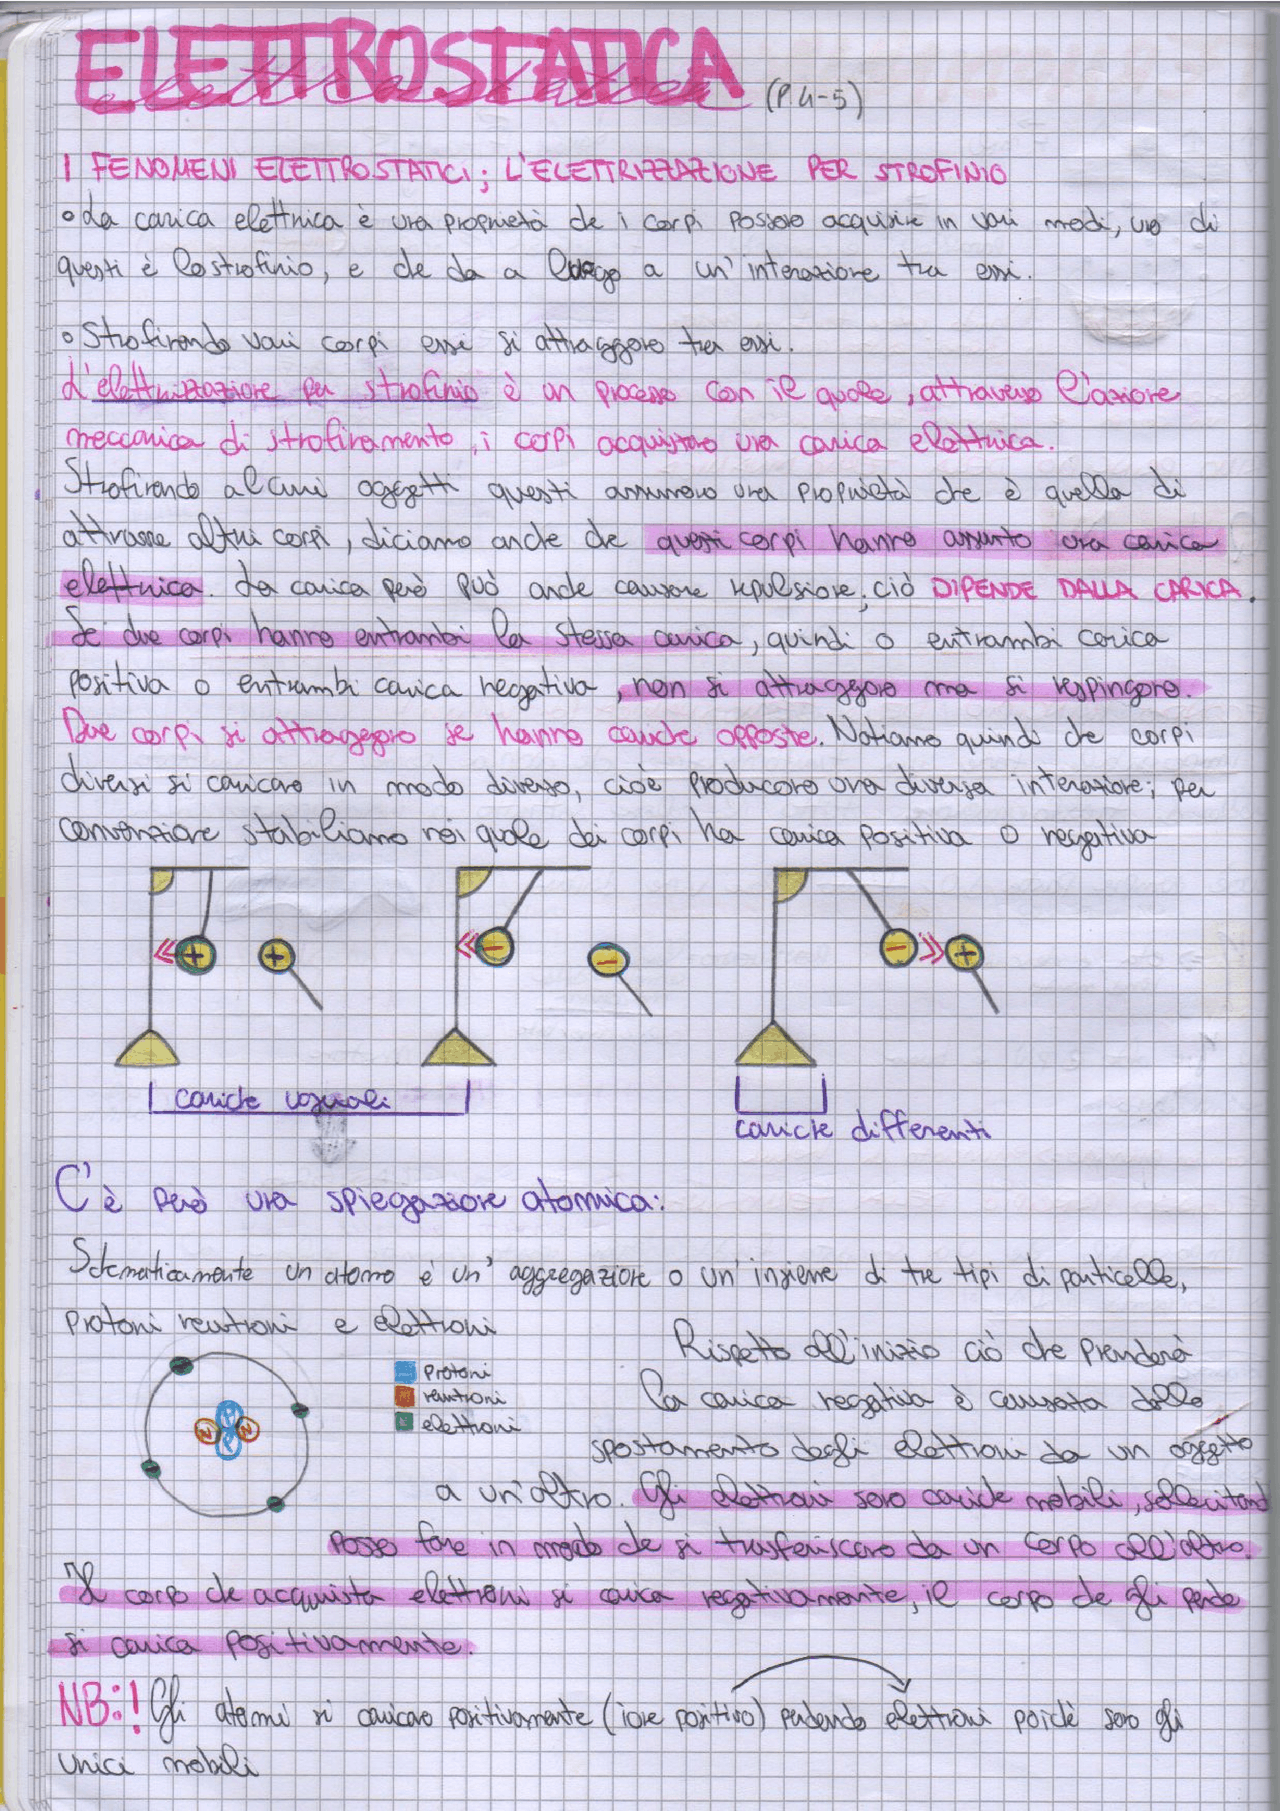 ELETTROSTATICA (P.4-5)
I FENOMENI ELETTROSTATICI; L'ELETTRIZZAZIONE PER STROFINIO
• La carica elettrica è una proprietà che i corpi possono acquisire in vari modi, uno di
questi è lo strofinio, e che da a luogo a un'interazione tra essi.
• Strofinando vari corpi essi si attraggono tra essi.
L'elettrizzazione per strofinio è un processo con il quale, attraverso l'azione
meccanica di strofinamento, i corpi acquistano una carica elettrica.
Strofinando alcuni oggetti questi assumono una proprietà che è quella di
attrarre altri corpi, diciamo anche che questi corpi hanno assunto una carica
elettrica. La carica però può anche causare repulsione; ciò DIPENDE DALLA CARICA.
Se due corpi hanno entrambi la stessa carica, quindi o entrambi carica
positiva o entrambi carica negativa, non si attraggono ma si respingono.
Due corpi si attraggono se hanno cariche opposte. Notiamo quindi che corpi
diversi si caricano in modo diverso, cioè producono una diversa interazione; per
convenzione stabiliamo noi quale dei corpi ha carica positiva o negativa
+ + - - - +
cariche uguali
cariche differenti
C'è però una spiegazione atomica:
Schematicamente un atomo è un' aggregazione o un' insieme di tre tipi di particelle,
protoni neutroni e elettroni
protoni
neutroni
elettroni
P
N N
P
Rispetto all'inizio ciò che prenderà
la carica negativa è causata dallo
spostamento degli elettroni da un oggetto
a un'altro. Gli elettroni sono cariche mobili, sollecitand
posso fare in modo che si trasferiscano da un corpo all'altro.
Il corpo che acquista elettroni si carica negativamente, il corpo che gli perde
si carica positivamente.
NB:! Gli atomi si caricano positivamente (ione positivo) perdendo elettroni poichè sono gli
unici mobili